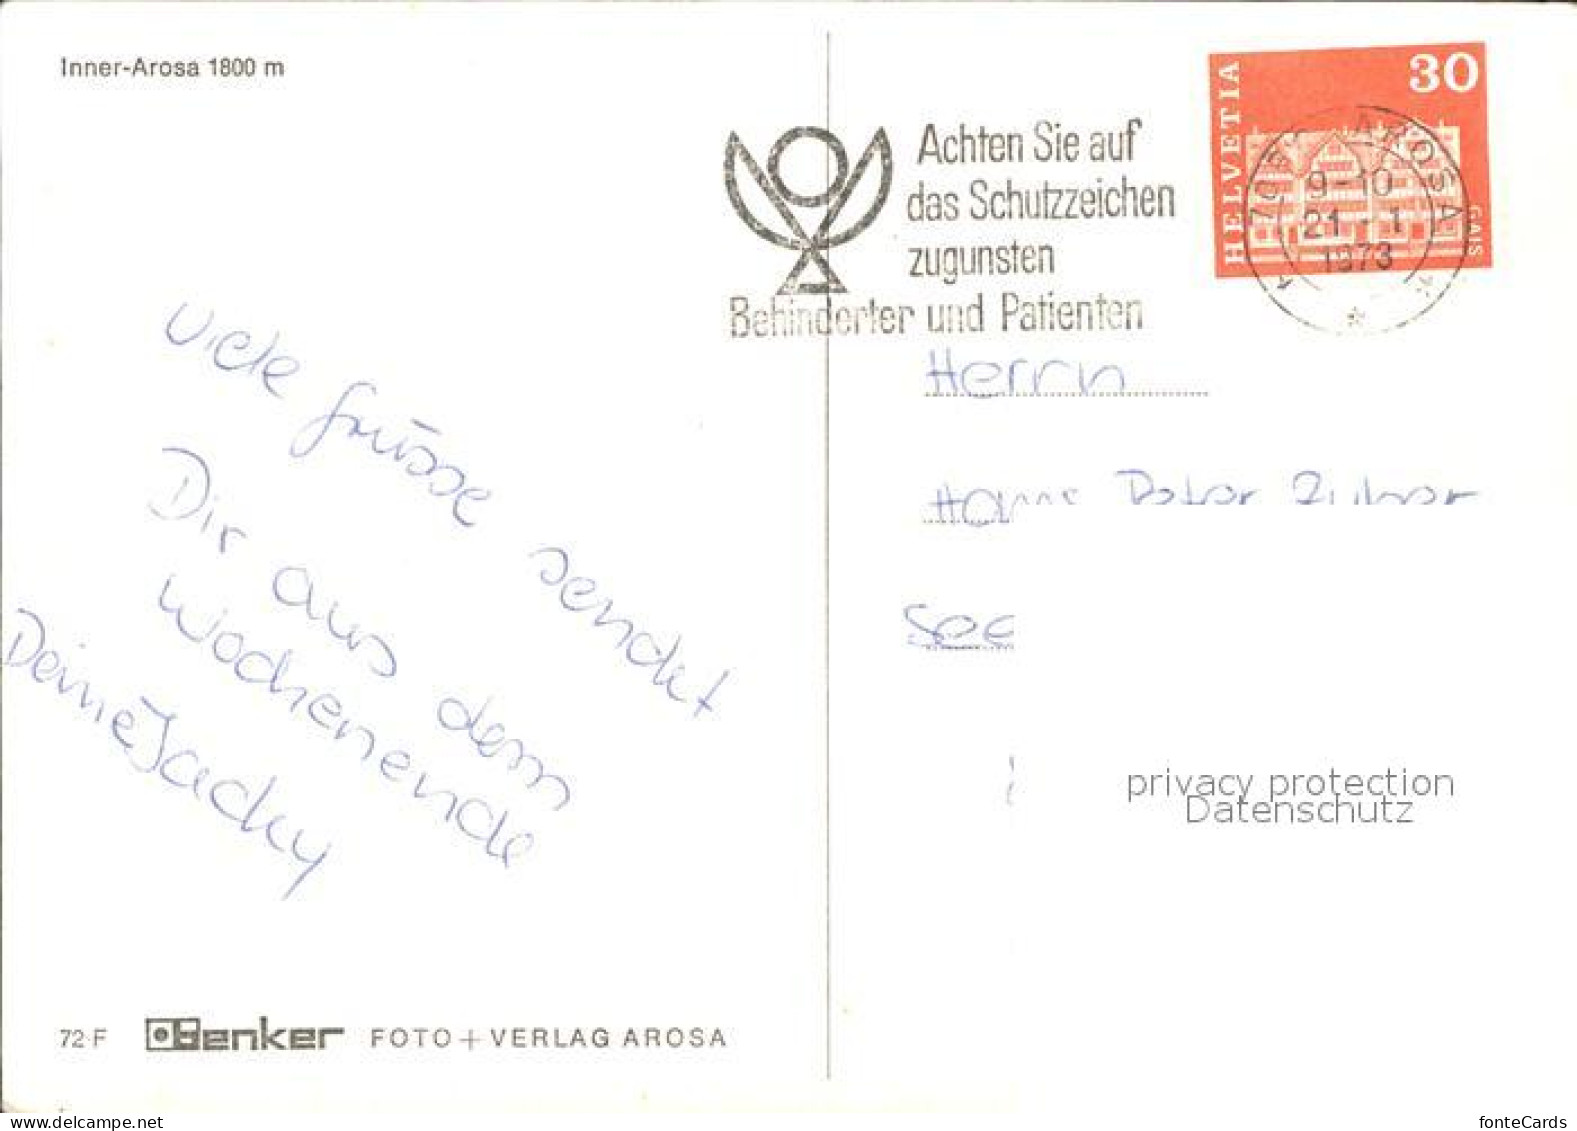 Inner-Arosa 1800 m
Viele Grüsse sendet
Dir aus dem
Wochenende
Deine Jacky
72-F Benker FOTO + VERLAG AROSA
Achten Sie auf
das Schutzzeichen
zugunsten
Behinderter und Patienten
HELVETIA
30
GAIS
AROSA
9-10
21 - 1
1973
Herrn
privacy protection
Datenschutz
fonteCards